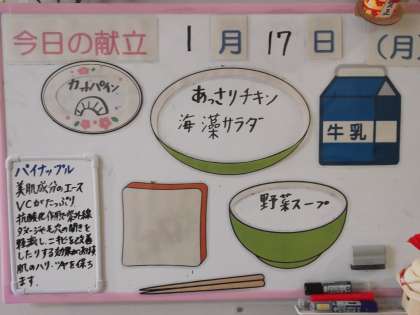 今日の献立 1月17日(月)
カットパイン
あっさりチキン
海藻サラダ
牛乳
野菜スープ
パイナップル
美肌成分のエース
VCがたっぷり
抗酸化作用で紫外線
ダメージや毛穴の開きを
軽減し、ニキビを改善
したりする効果が期待
肌のハリ・ツヤを保ち
ます。